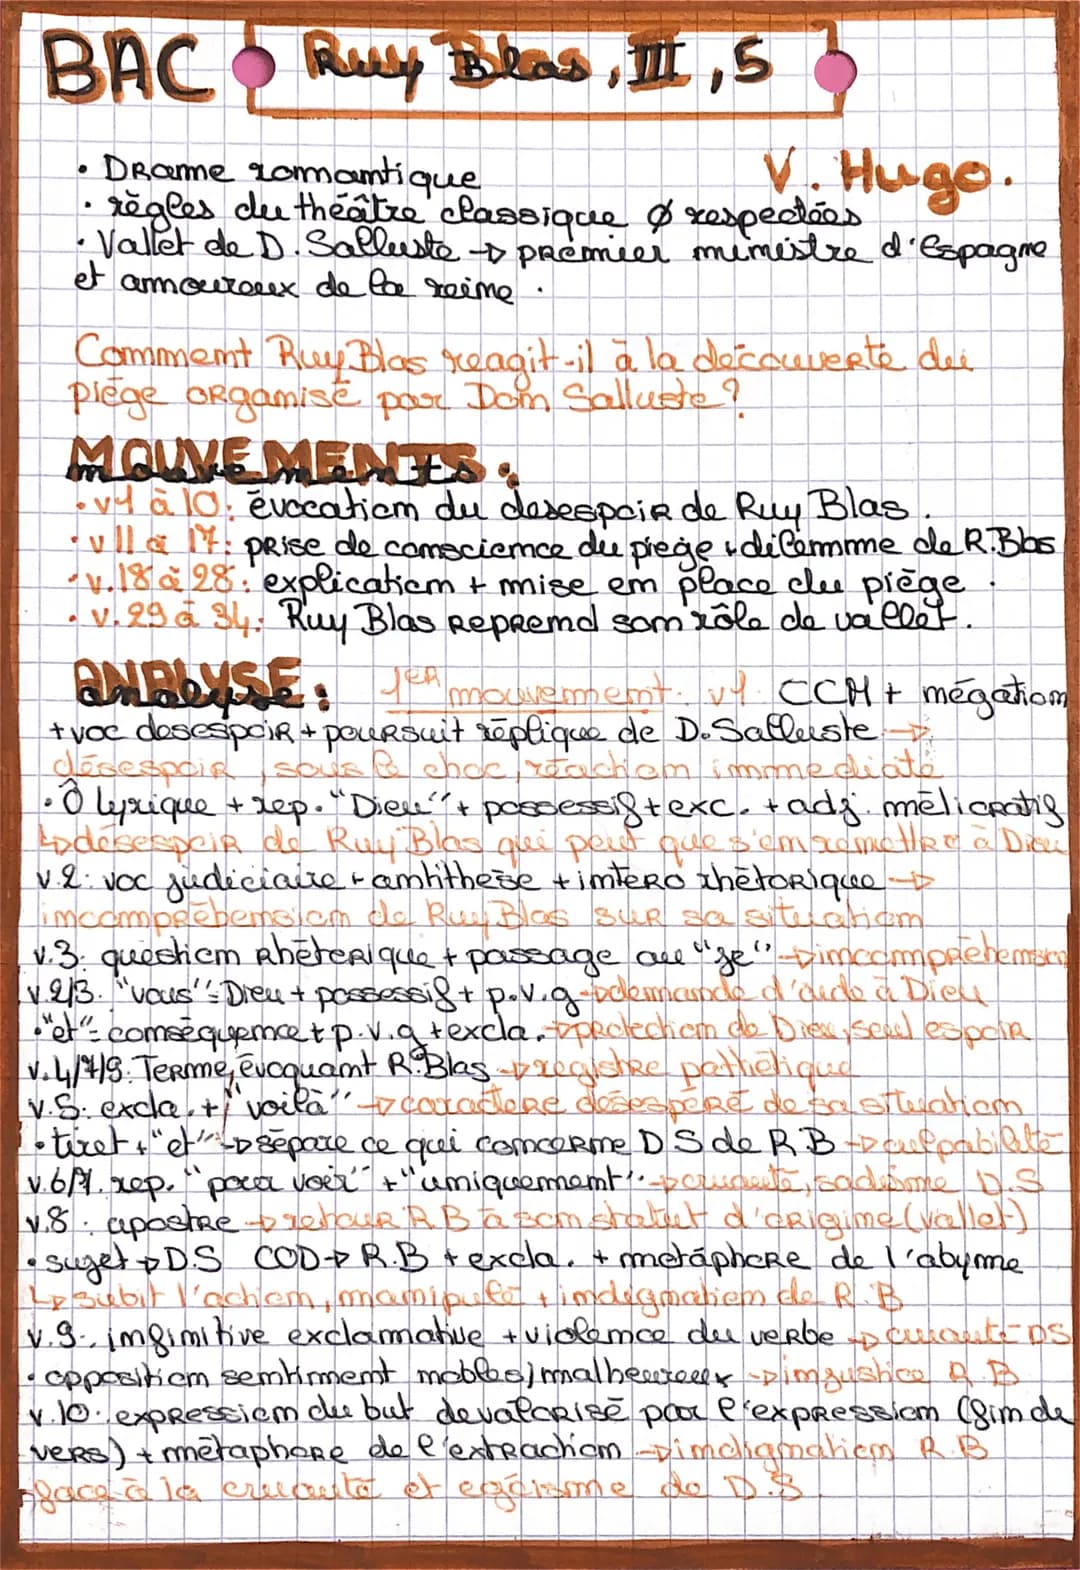 BAC Ruy Blas, III, 5
• Drame romantique
V. Hugo.
• règles du théâtre classique Ø respectées
• Vallet de D. Salluste → premier ministre d'Espagne
et amoureux de la reine.
Comment Ruy Blas reagit-il à la découverte du
piège organisé par Dom Salluste?
MOUVEMENTS:
• v1 à 10: évocation du desespoir de Ruy Blas.
• v11 à 17: prise de conscience du piege + dilemme de R.Blas
• v.18 à 28: explication + mise en place du piège.
• v.29 à 34: Ruy Blas reprend son rôle de vallet.
ANALYSE: 1er mouvement: v1 CCM + négation
+ voc desespoir + poursuit réplique de D.Salluste →
désespoir, sous le choc, réaction immédiate
• Ô lyrique + rep. "Dieu" + possessif + exc. + adj. mélioratif
↳ désespoir de Ruy Blas qui peut que s'en remettre à Dieu
v.2: voc judiciaire + antithèse + intero rhétorique →
incompréhension de Ruy Blas sur sa situation
v.3: question rhéterique + passage au "je" → incompréhension
v.2/3. "vous" = Dieu + possessif + p.v.g → demande d'aide à Dieu
• "et" = conséquence + p.v.g + excla. → protection de Dieu, seul espoir
v.4/7/9: Terme évoquant R.Blas → registre pathétique
v.5: excla. + "voilà" → caractère désespéré de sa situation
• tiret + "et" → sépare ce qui concerne DS de R.B → culpabilité
v.6/7. rep. "pour voir" + "uniquement": → cruauté, sadisme D.S
v.8: apostre → retour R.B à son statut d'origine (vallet)
• sujet → D.S COD → R.B + excla. + métaphore de l'abyme
↳ subit l'action, manipulé + indignation de R.B
v.9: infinitive exclamative + violence du verbe → cruauté DS
• opposition sentiment nobles/malheureux → injustice R.B
v.10: expression du but devalorisé par l'expression (fin de
vers) + métaphore de l'extraction → indignation R.B
face à la cruauté et egoïsme de D.S.